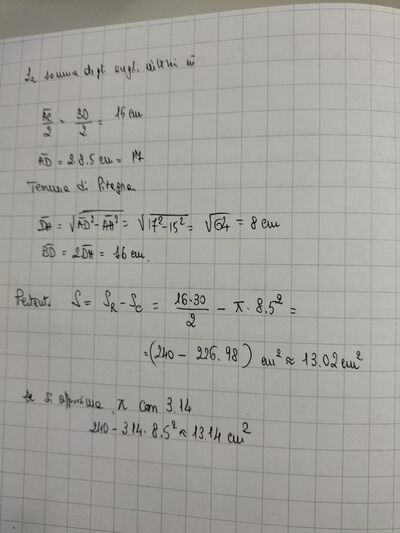 La somma degli angoli interni
AC/2 = 30/2 = 15 cm
AD = 2·8.5 cm = 17
Teorema di Pitagora
DH = √(AD² - AH²) = √(17² - 15²) = √64 = 8 cm
BD = 2DH = 16 cm.
Pertant. S = S_R - S_C = 16·30/2 - π · 8.5² =
= (240 - 226.98) cm² ≈ 13.02 cm²
se si approssima π con 3.14
240 - 3.14 · 8.5² ≈ 13.14 cm²